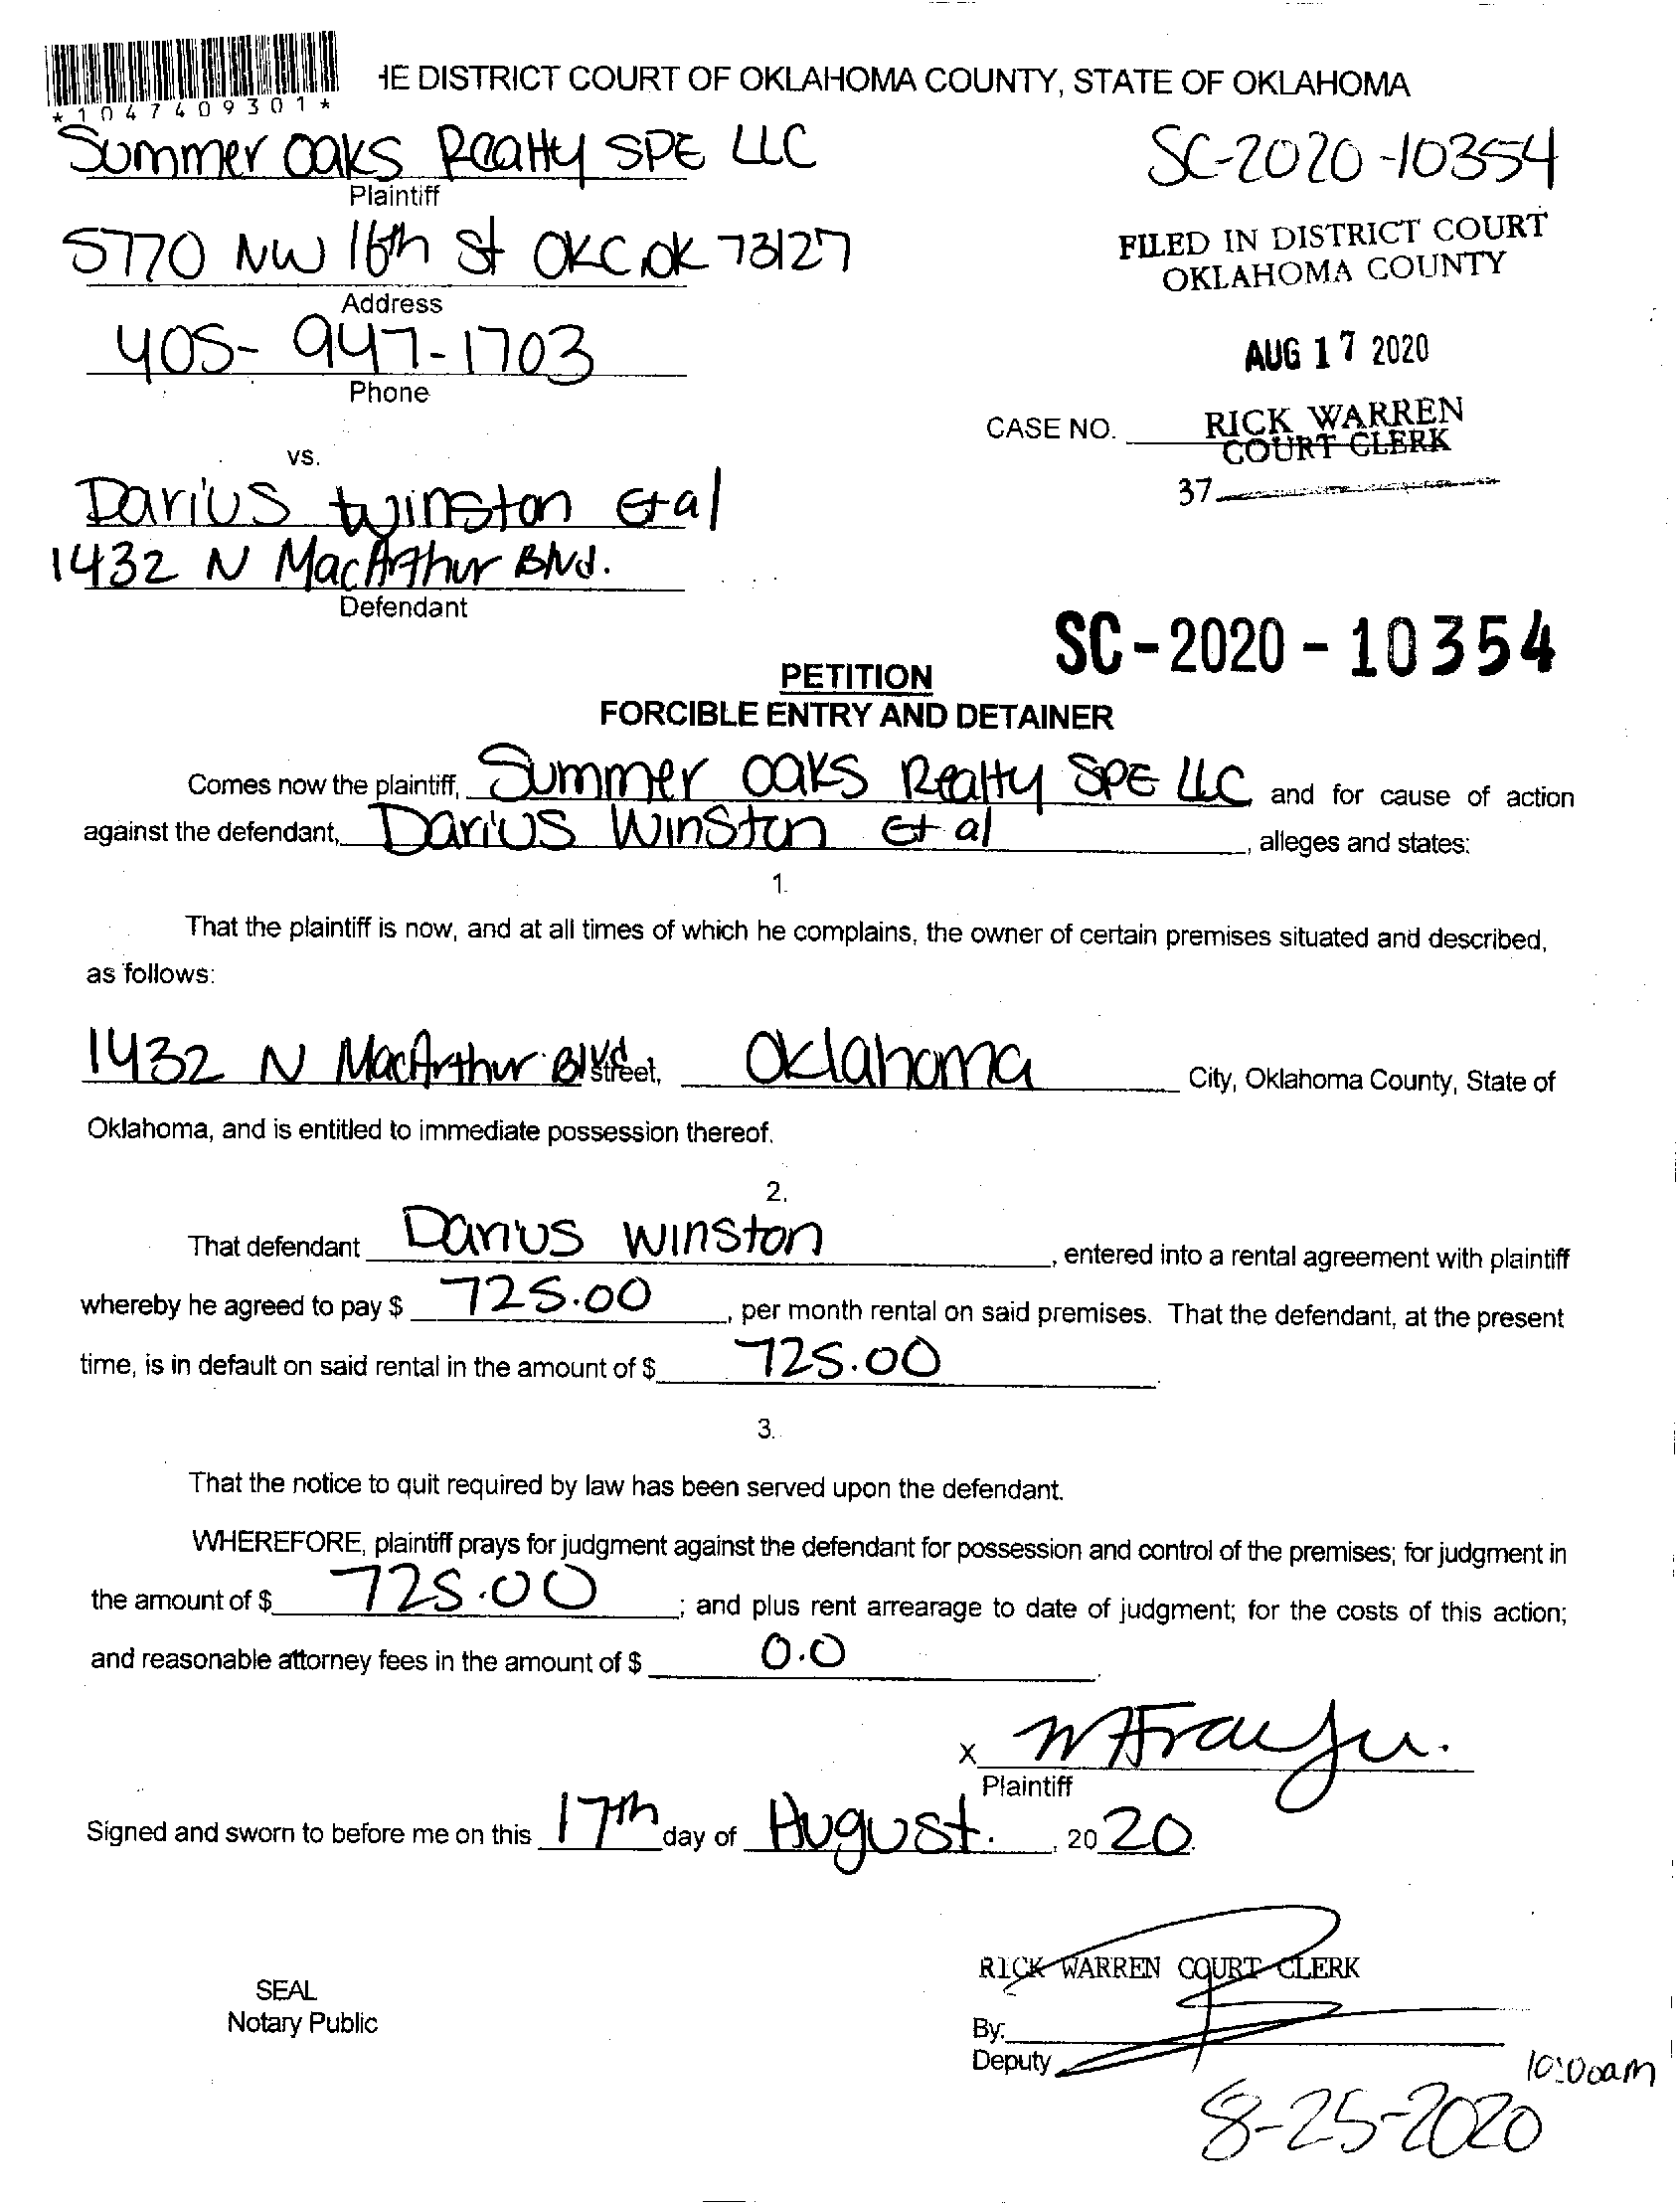 *1047409301*
HE DISTRICT COURT OF OKLAHOMA COUNTY, STATE OF OKLAHOMA
Summer Oaks Realty SPE LLC
Plaintiff
SC-2020-10354
5770 NW 16th St OKC, OK 73127
Address
FILED IN DISTRICT COURT
OKLAHOMA COUNTY
405-947-1703
Phone
AUG 17 2020
CASE NO.
RICK WARREN
COURT CLERK
37
vs.
Darius Winston et al
1432 N MacArthur Blvd.
Defendant
SC-2020-10354
PETITION
FORCIBLE ENTRY AND DETAINER
Comes now the plaintiff, Summer Oaks Realty SPE LLC and for cause of action
against the defendant, Darius Winston et al, alleges and states:
1.
That the plaintiff is now, and at all times of which he complains, the owner of certain premises situated and described,
as follows:
1432 N MacArthur Blvd Street, Oklahoma City, Oklahoma County, State of
Oklahoma, and is entitled to immediate possession thereof.
2.
That defendant Darius Winston, entered into a rental agreement with plaintiff
whereby he agreed to pay $ 725.00, per month rental on said premises. That the defendant, at the present
time, is in default on said rental in the amount of $ 725.00.
3.
That the notice to quit required by law has been served upon the defendant.
WHEREFORE, plaintiff prays for judgment against the defendant for possession and control of the premises; for judgment in
the amount of $ 725.00; and plus rent arrearage to date of judgment; for the costs of this action;
and reasonable attorney fees in the amount of $ 0.0.
X
Plaintiff
Signed and sworn to before me on this 17th day of August., 2020.
RICK WARREN COURT CLERK
SEAL
Notary Public
By:
Deputy
10:00am
8-25-2020